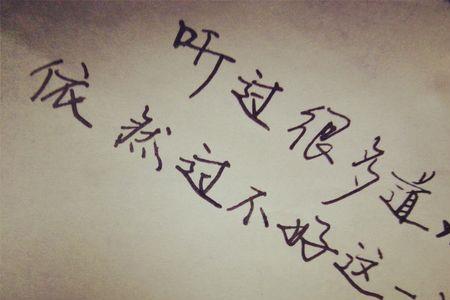 听过很多道
依然过不好这一